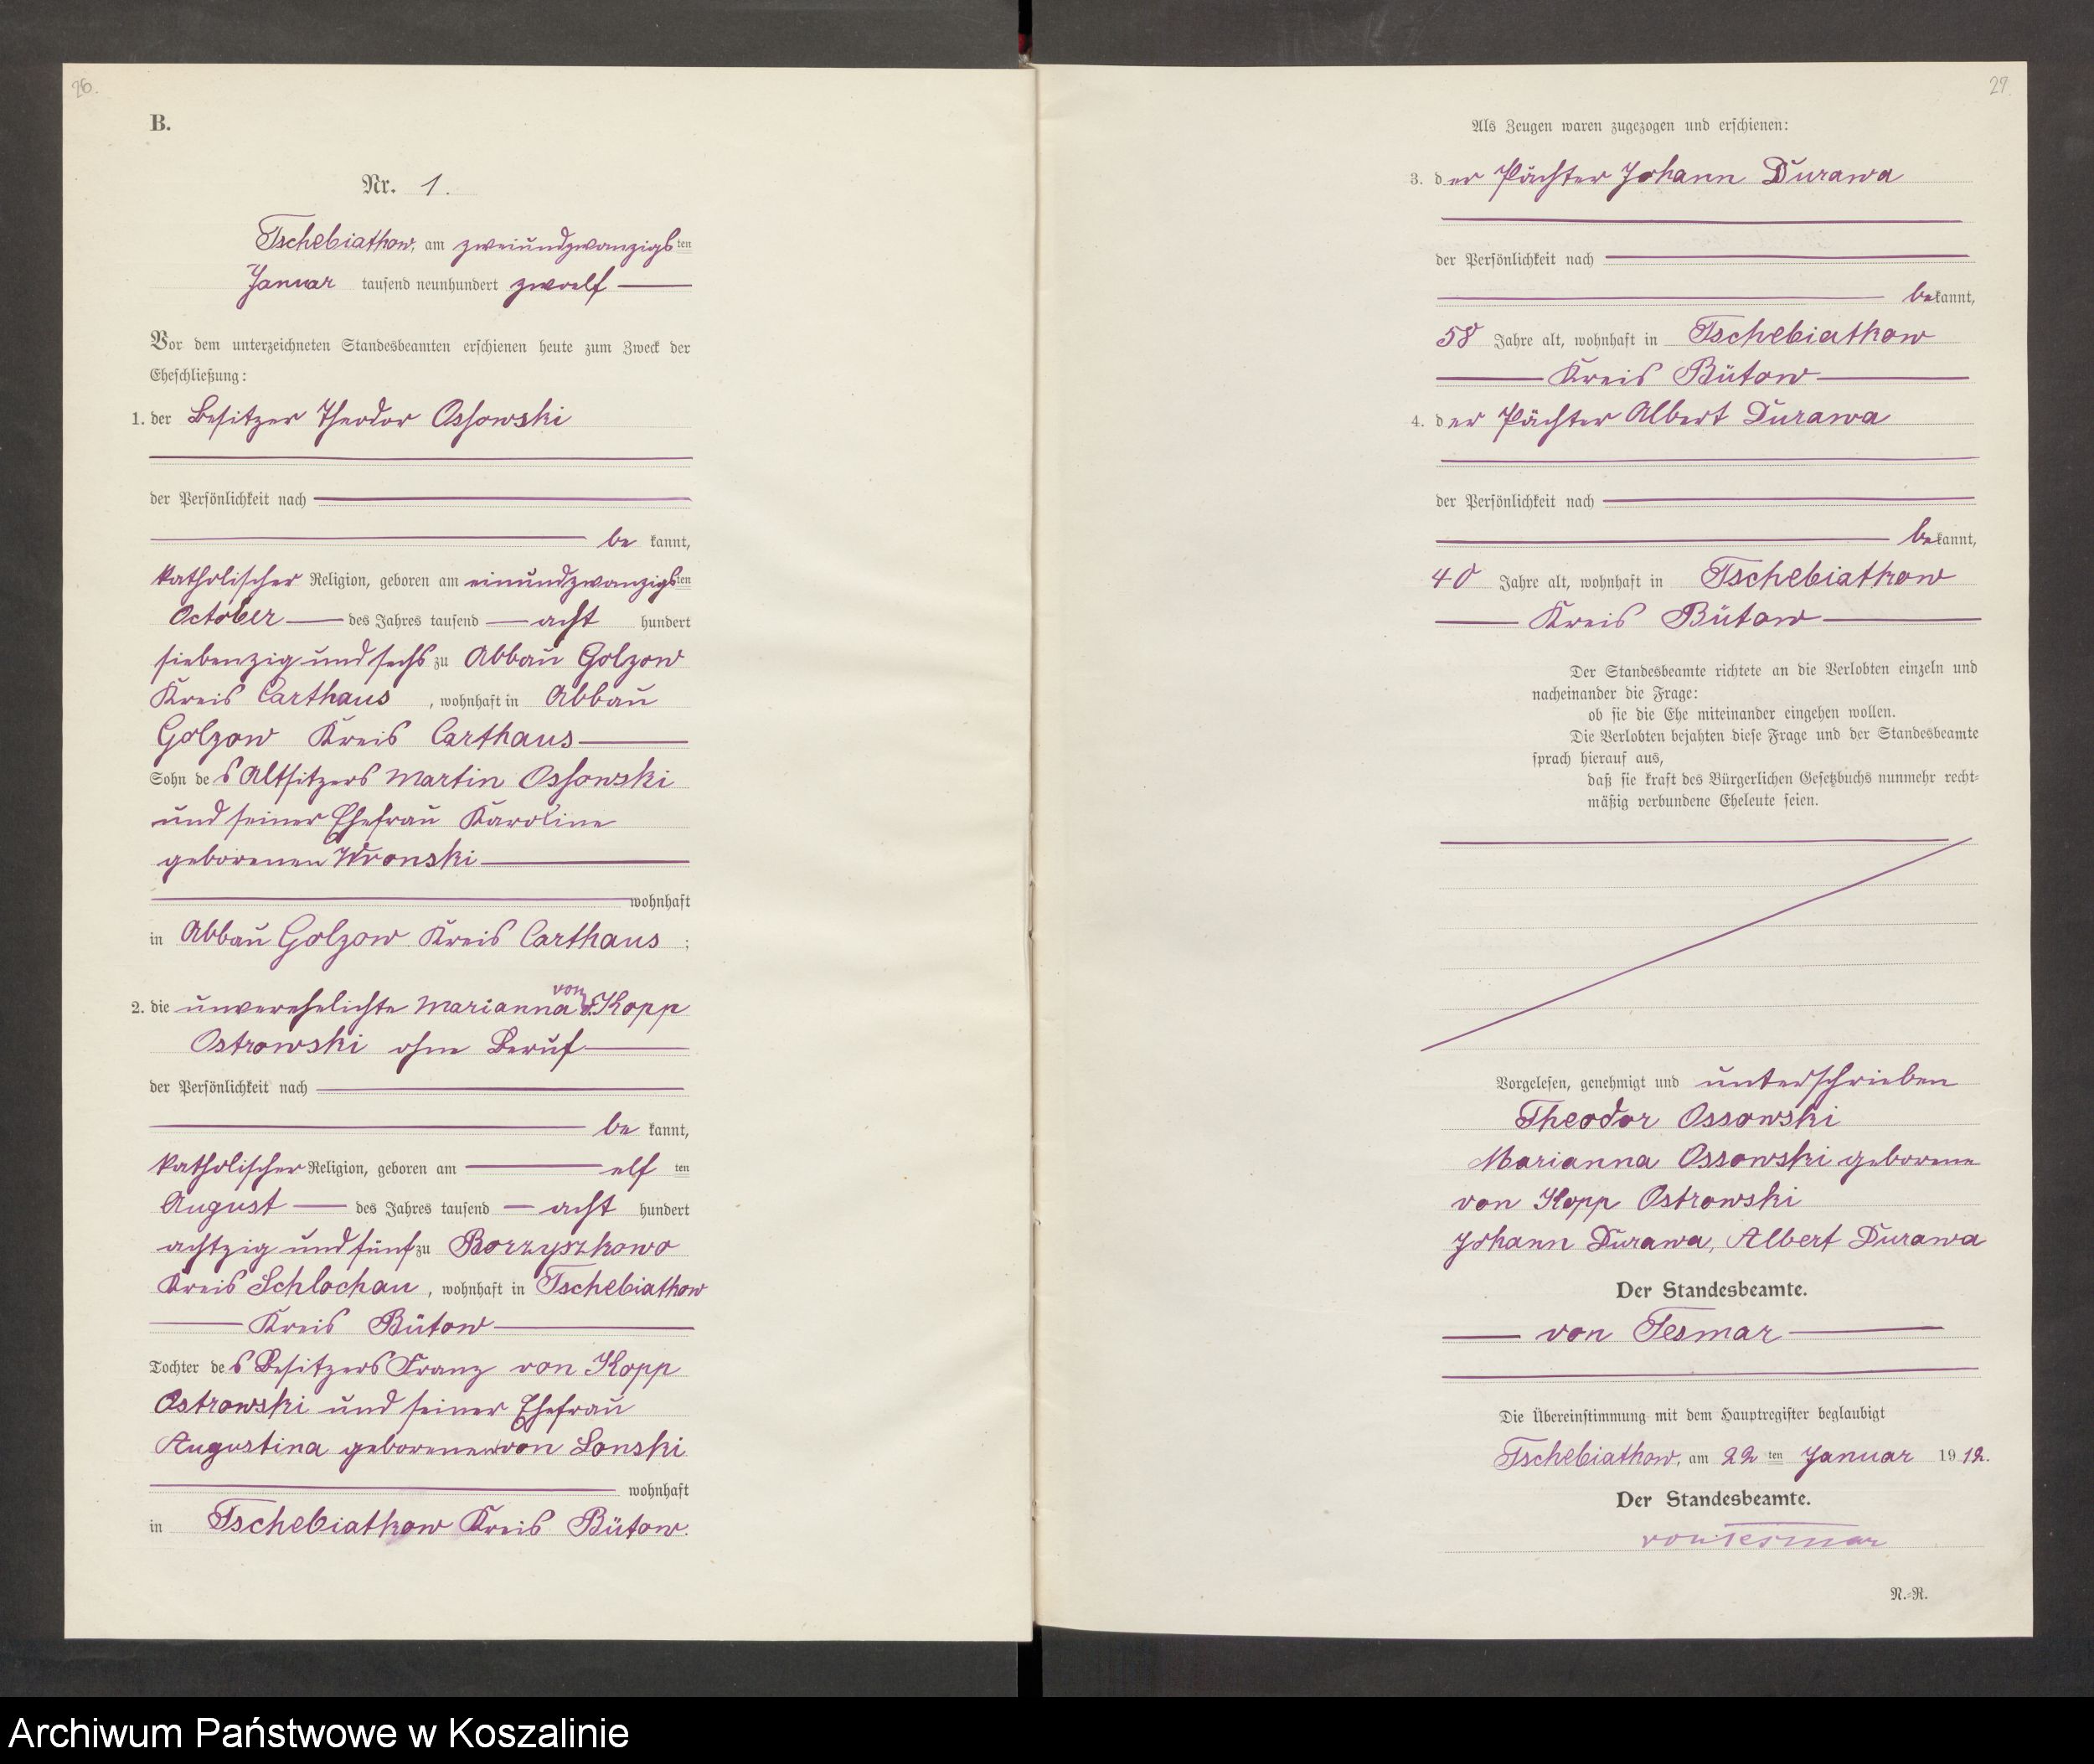 26.
B.
Nr. 1.
Tschebiatkow, am zweiundzwanzigsten
Januar tausend neunhundert zwoelf
Vor dem unterzeichneten Standesbeamten erschienen heute zum Zweck der
Eheschließung:
1. der Besitzer Theodor Ossowski
der Persönlichkeit nach
be kannt,
katholischer Religion, geboren am einundzwanzigsten
October des Jahres tausend acht hundert
siebenzig und sechs zu Abbau Golzow
Kreis Carthaus, wohnhaft in Abbau
Golzow Kreis Carthaus
Sohn des Altsitzers Martin Ossowski
und seiner Ehefrau Karoline
geborenen Wronski
wohnhaft
in Abbau Golzow Kreis Carthaus ;
von
2. die unverehelichte Marianna v. Kopp
Ostrowski ohne Beruf
der Persönlichkeit nach
be kannt,
katholischer Religion, geboren am elf ten
August des Jahres tausend acht hundert
achtzig und fünf zu Borzyszkowo
Kreis Schlochau, wohnhaft in Tschebiatkow
Kreis Bütow
Tochter des Besitzers Franz von Kopp
Ostrowski und seiner Ehefrau
Augustina geborenen von Lonski
wohnhaft
in Tschebiatkow Kreis Bütow.
27.
Als Zeugen waren zugezogen und erschienen:
3. der Pächter Johann Durawa
der Persönlichkeit nach
bekannt,
58 Jahre alt, wohnhaft in Tschebiatkow
Kreis Bütow
4. der Pächter Albert Durawa
der Persönlichkeit nach
bekannt,
40 Jahre alt, wohnhaft in Tschebiatkow
Kreis Bütow
Der Standesbeamte richtete an die Verlobten einzeln und
nacheinander die Frage:
ob sie die Ehe miteinander eingehen wollen.
Die Verlobten bejahten diese Frage und der Standesbeamte
sprach hierauf aus,
daß sie kraft des Bürgerlichen Gesetzbuchs nunmehr recht-
mäßig verbundene Eheleute seien.
Vorgelesen, genehmigt und unterschrieben
Theodor Ossowski
Marianna Ossowski geborene
von Kopp Ostrowski
Johann Durawa, Albert Durawa
Der Standesbeamte.
von Tesmar
Die Übereinstimmung mit dem Hauptregister beglaubigt
Tschebiatkow, am 22 ten Januar 1912.
Der Standesbeamte.
von Tesmar
N.-R.
Archiwum Państwowe w Koszalinie